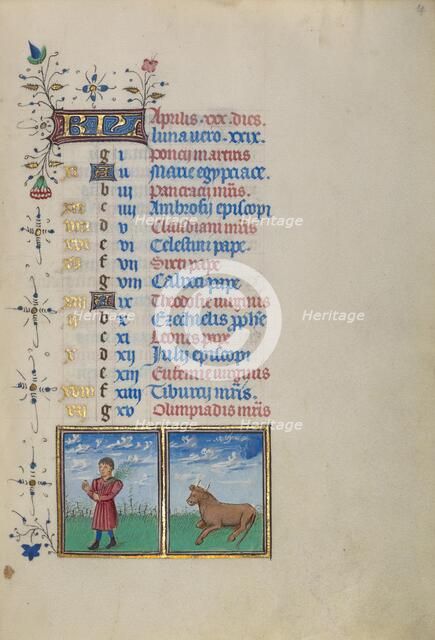 4
KL Aprilis · xxx · dies.
luna uero · xxix.
g i Poncii martiris
xi A ii Marie egypciace.
b iii Pancracii m̄is.
xix c iiii Ambrosii episcopi
viii d v Claudiani m̄is
xvi e vi Celestini pape.
v f vii Sixti pape
g viii Calixti pape.
xiii A ix Theodosie uirginis
ii b x Ezechielis pphe
c xi Leonis pape
x d xii Julii episcopi
e xiii Eufemie uirginis
xviii f xiiii Tiburcii m̄is.
vii g xv Olimpiadis m̄is
Heritage
Heritage
Heritage
Heritage
Heritage
Heritage
Heritage